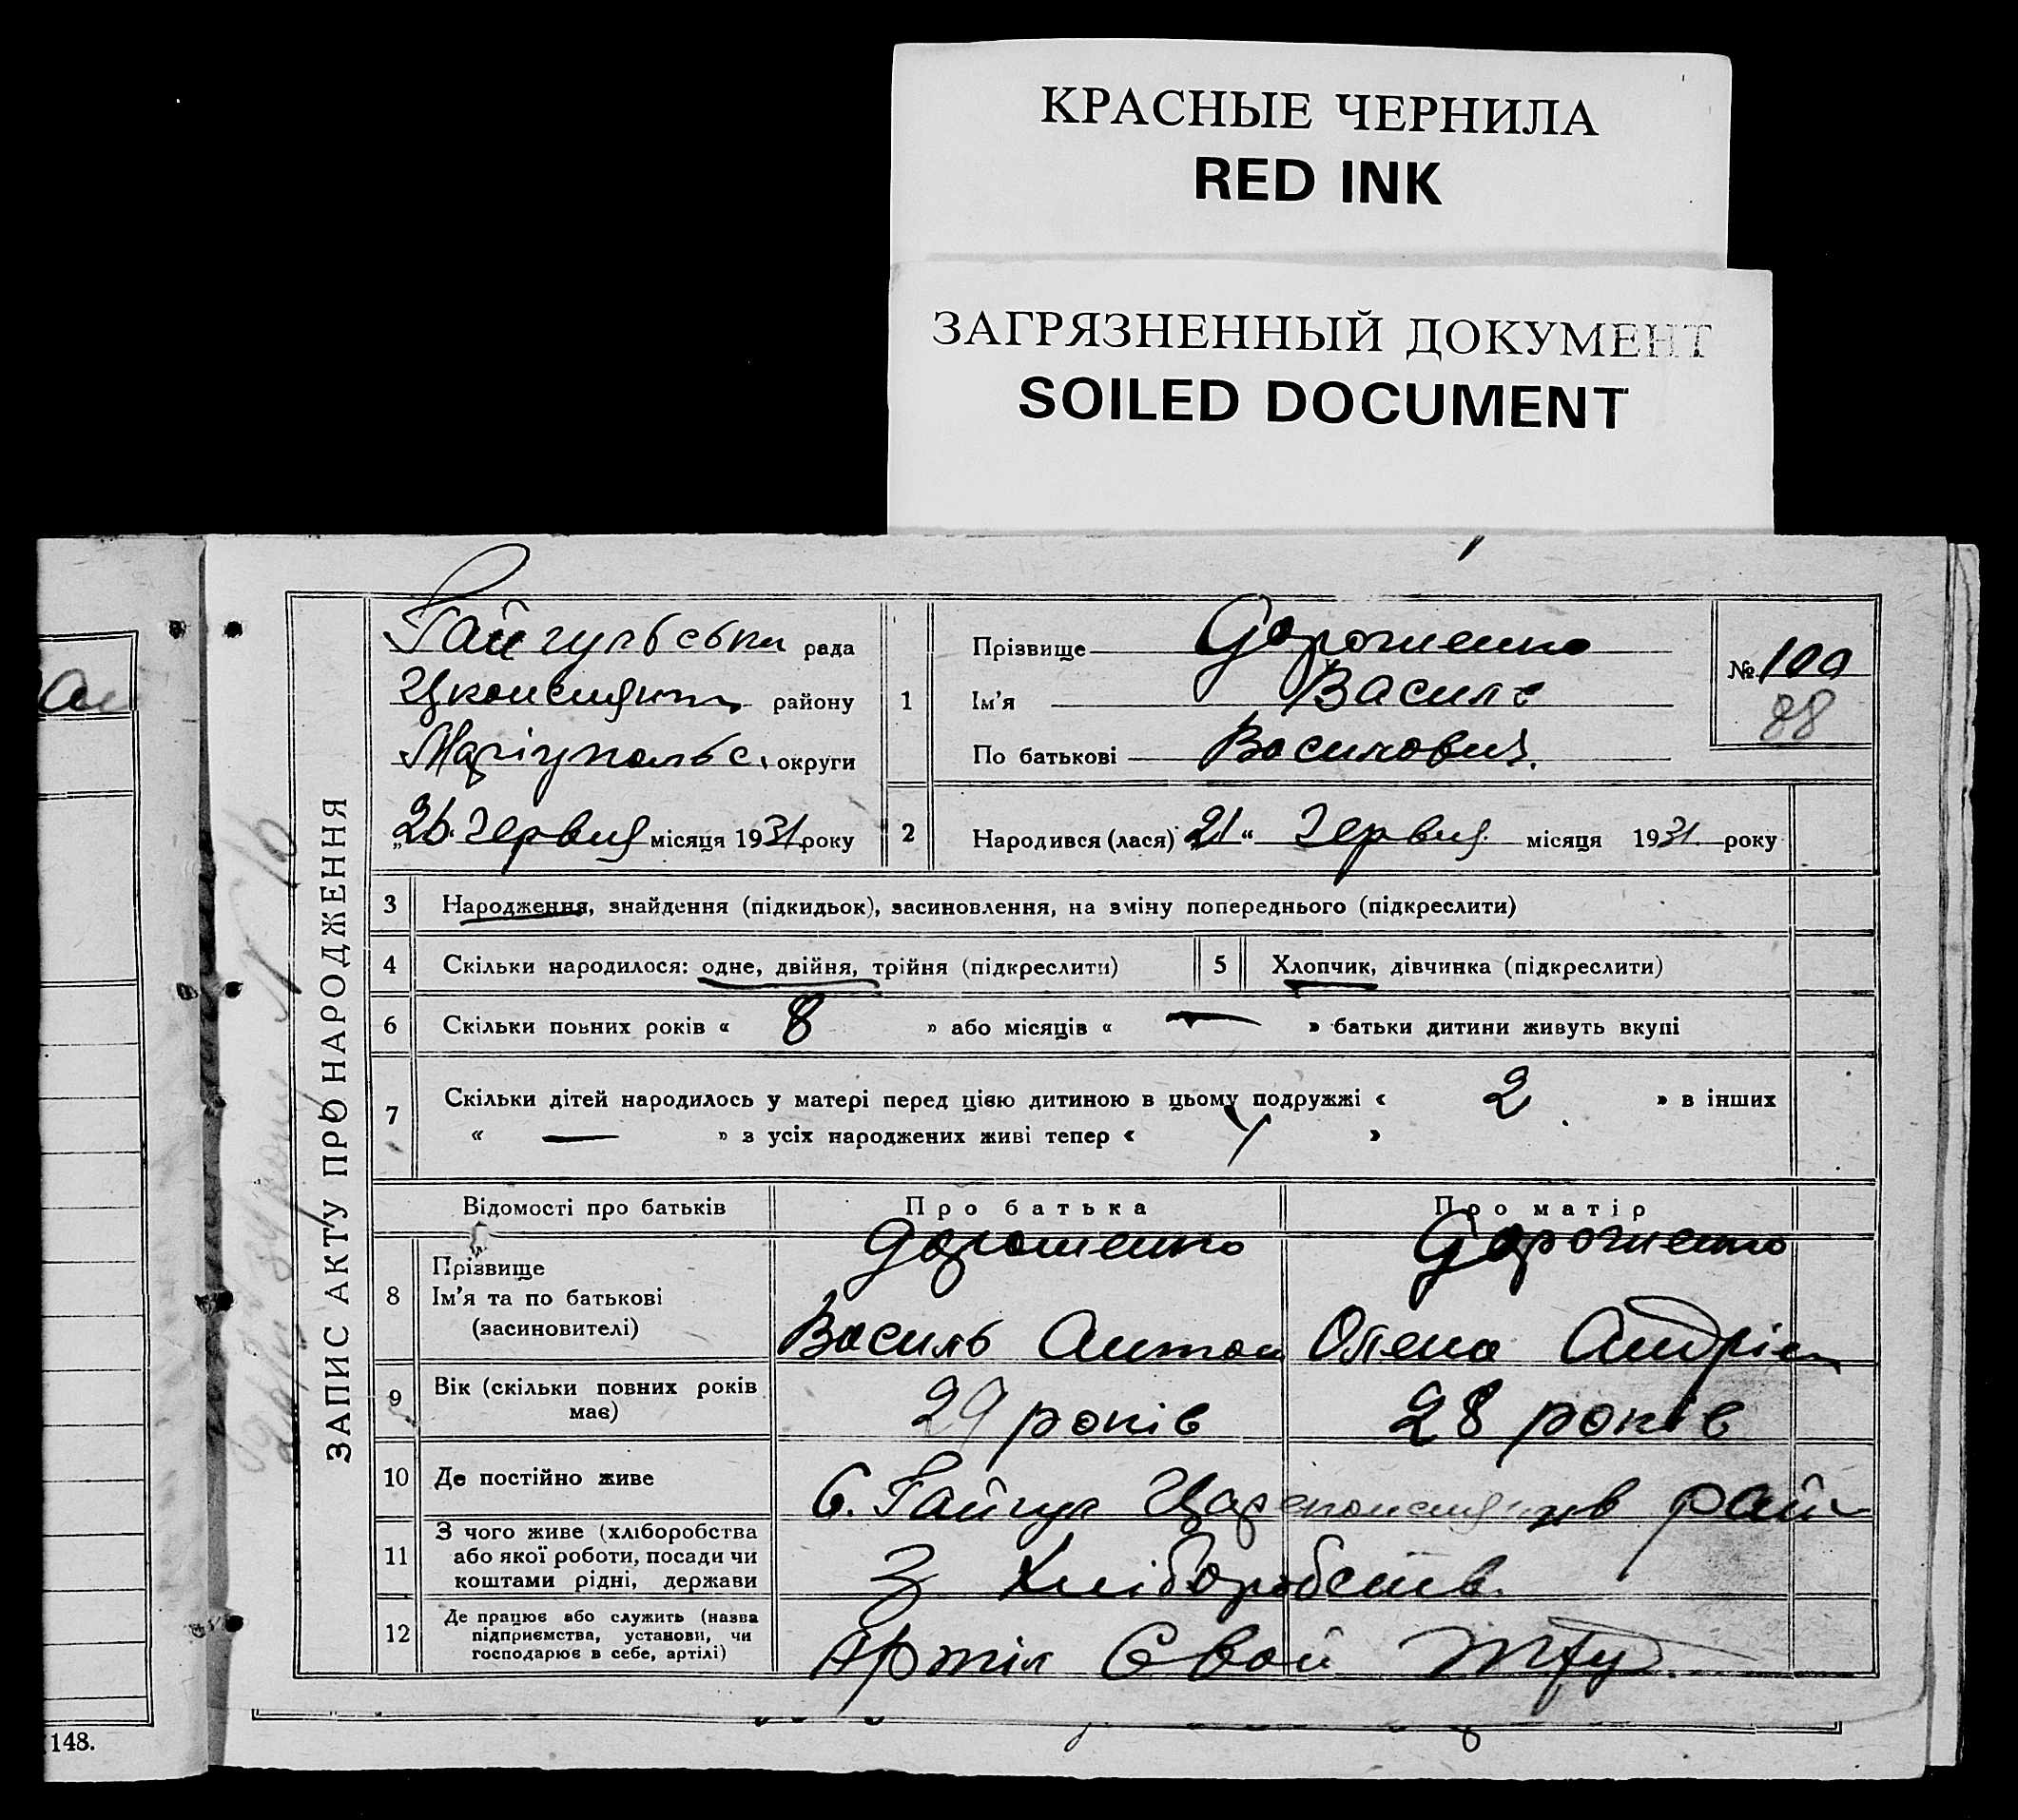 КРАСНЫЕ ЧЕРНИЛА
RED INK
ЗАГРЯЗНЕННЫЙ ДОКУМЕНТ
SOILED DOCUMENT
ЗАПИС АКТУ ПРО НАРОДЖЕННЯ
рада
району
Маріупольс. округи
„26" Червня місяця 1931 року
1
Прізвище Дорошенко
Ім'я Василь
По батькові Василович.
№ 100
88
2
Народився (лася) „21" Червня місяця 1931 року
3 Народження, знайдення (підкидьок), засиновлення, на зміну попереднього (підкреслити)
4 Скільки народилося: одне, двійня, трійня (підкреслити)
5 Хлопчик, дівчинка (підкреслити)
6 Скільки повних років « 8 » або місяців « — » батьки дитини живуть вкупі
7 Скільки дітей народилось у матері перед цією дитиною в цьому подружжі « 2 » в інших
« — » з усіх народжених живі тепер « »
Відомості про батьків Про батька Про матір
8 Прізвище
Ім'я та по батькові
(засиновителі)
Дорошенко
Василь Антон
Дорошенко
Олена Андрі
9 Вік (скільки повних років має)
29 років 28 років
10 Де постійно живе
С. Гайчул рай
11 З чого живе (хліборобства
або якої роботи, посади чи
коштами рідні, держави
З Хліборобств.
12 Де працює або служить (назва
підприємства, установи, чи
господарює в себе, артілі)
Артіл Свой
148.